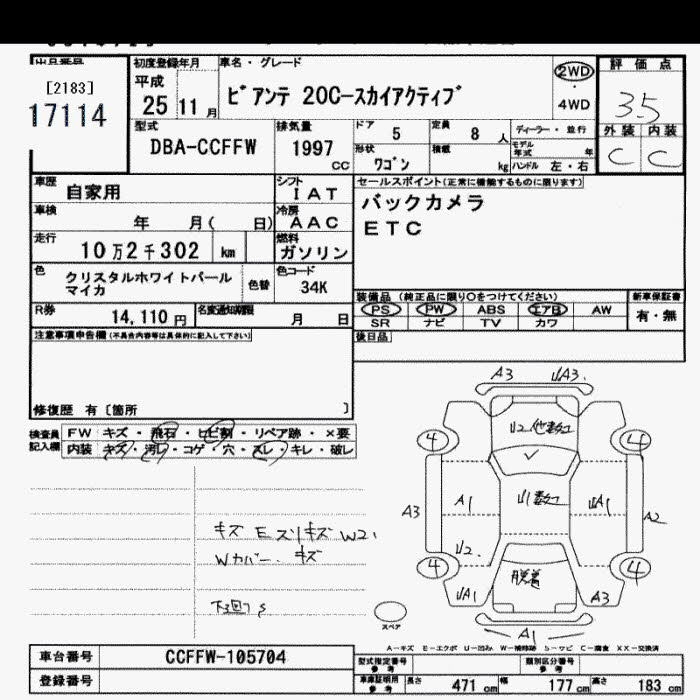 出品番号
[2183]
17114
初度登録年月
平成
25 11 月
車名・グレード
ビアンテ 20C-スカイアクティブ
2WD
4WD
評価点
3.5
外装 内装
C C
型式
DBA-CCFFW
排気量
1997 cc
ドア 5
定員 8 人
形状 ワゴン
積載 kg
ディーラー・並行
モデル年式 年
ハンドル 左・右
車歴 自家用
シフト IAT
車検 年 月( 日)
冷房 AAC
走行 10万2千302 km
燃料 ガソリン
色 クリスタルホワイトパール
マイカ
色替
色コード 34K
R券 14,110 円
名変通知期限 月 日
セールスポイント(正常に機能するものに限ります)
バックカメラ
ETC
装備品 (純正品に限り○をつけてください)
新車保証書
PS PW ABS エアB AW
SR ナビ TV カワ
有・無
後日品
注意事項申告欄(不具合内容等は具体的に記入して下さい)
修復歴 有〔箇所 〕
検査員
記入欄
FW キズ・飛石・ヒビ割・リペア跡・×要
内装 キズ・汚レ・コゲ・穴・スレ・キレ・破レ
キズ E スリキズ W2,
Wカバー キズ
下回り S
A3 UA3
U2
4 4
A3 A1 U1 UA1 A2
U2
脱着
4 4
UA1 A3
A1
スペア
A-キズ E-エクボ U-凹み W-補修跡 S-サビ C-腐食 XX-交換済
車台番号 CCFFW-105704
登録番号
型式指定番号
参考
類別区分番号
参考
車庫証明用
参考
長さ 471 cm 幅 177 cm 高さ 183 cm